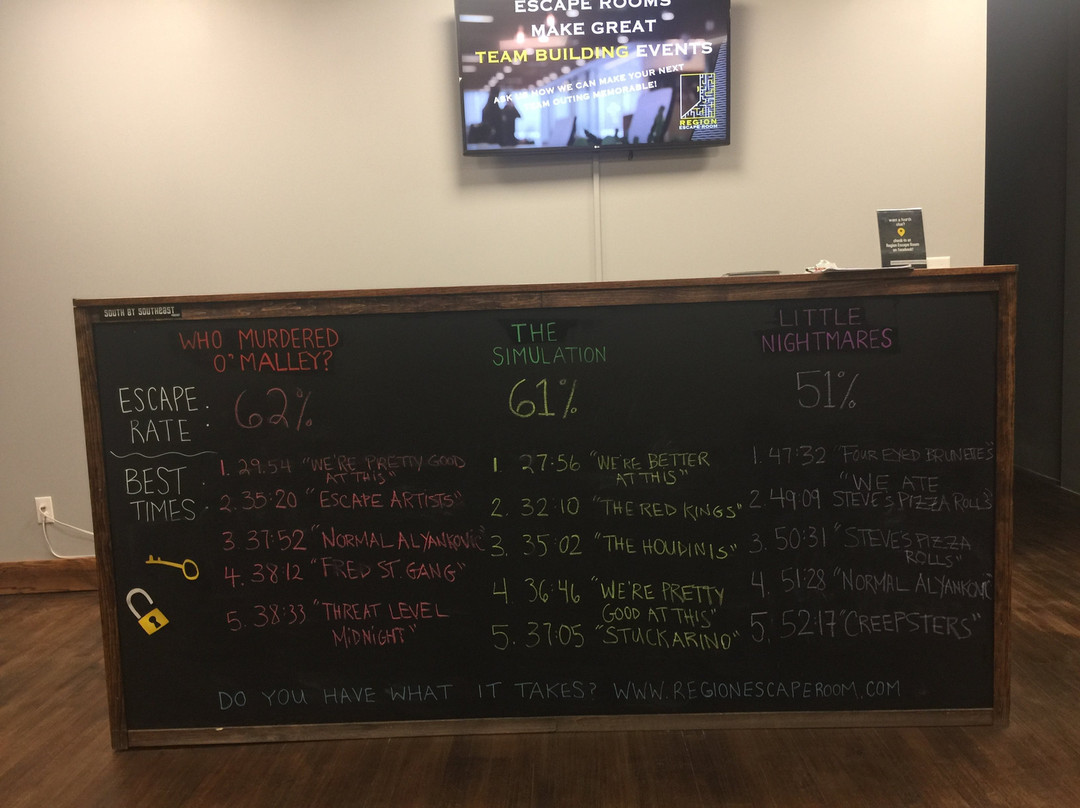 ESCAPE ROOMS
MAKE GREAT
TEAM BUILDING EVENTS
ASK US HOW WE CAN MAKE YOUR NEXT
TEAM OUTING MEMORABLE!
REGION
ESCAPE ROOM
check in at
Region Escape Room
on Facebook!
SOUTH BY SOUTHEAST
WHO MURDERED
O'MALLEY?
THE
SIMULATION
LITTLE
NIGHTMARES
ESCAPE
RATE
62%
61%
51%
BEST
TIMES
1. 29:54 "WE'RE PRETTY GOOD
AT THIS"
2. 35:20 "ESCAPE ARTISTS"
3 37:52 "NORMAL ALYANKOVIC"
4. 38:12 "FRED ST. GANG"
5. 38:33 "THREAT LEVEL
MIDNIGHT"
1. 27:56 "WE'RE BETTER
AT THIS"
2. 32:10 "THE RED KINGS"
3. 35:02 "THE HOUDINIS"
4. 36:46 "WE'RE PRETTY
GOOD AT THIS"
5. 37:05 "STUCKARINO"
1. 47:32 "FOUR EYED BRUNETTES"
"WE ATE
2. 49:09 STEVE'S PIZZA ROLLS"
3. 50:31 "STEVE'S PIZZA
ROLLS"
4. 51:28 "NORMAL ALYANKOVIC"
5. 52:17 "CREEPSTERS"
DO YOU HAVE WHAT IT TAKES? WWW.REGIONESCAPEROOM.COM